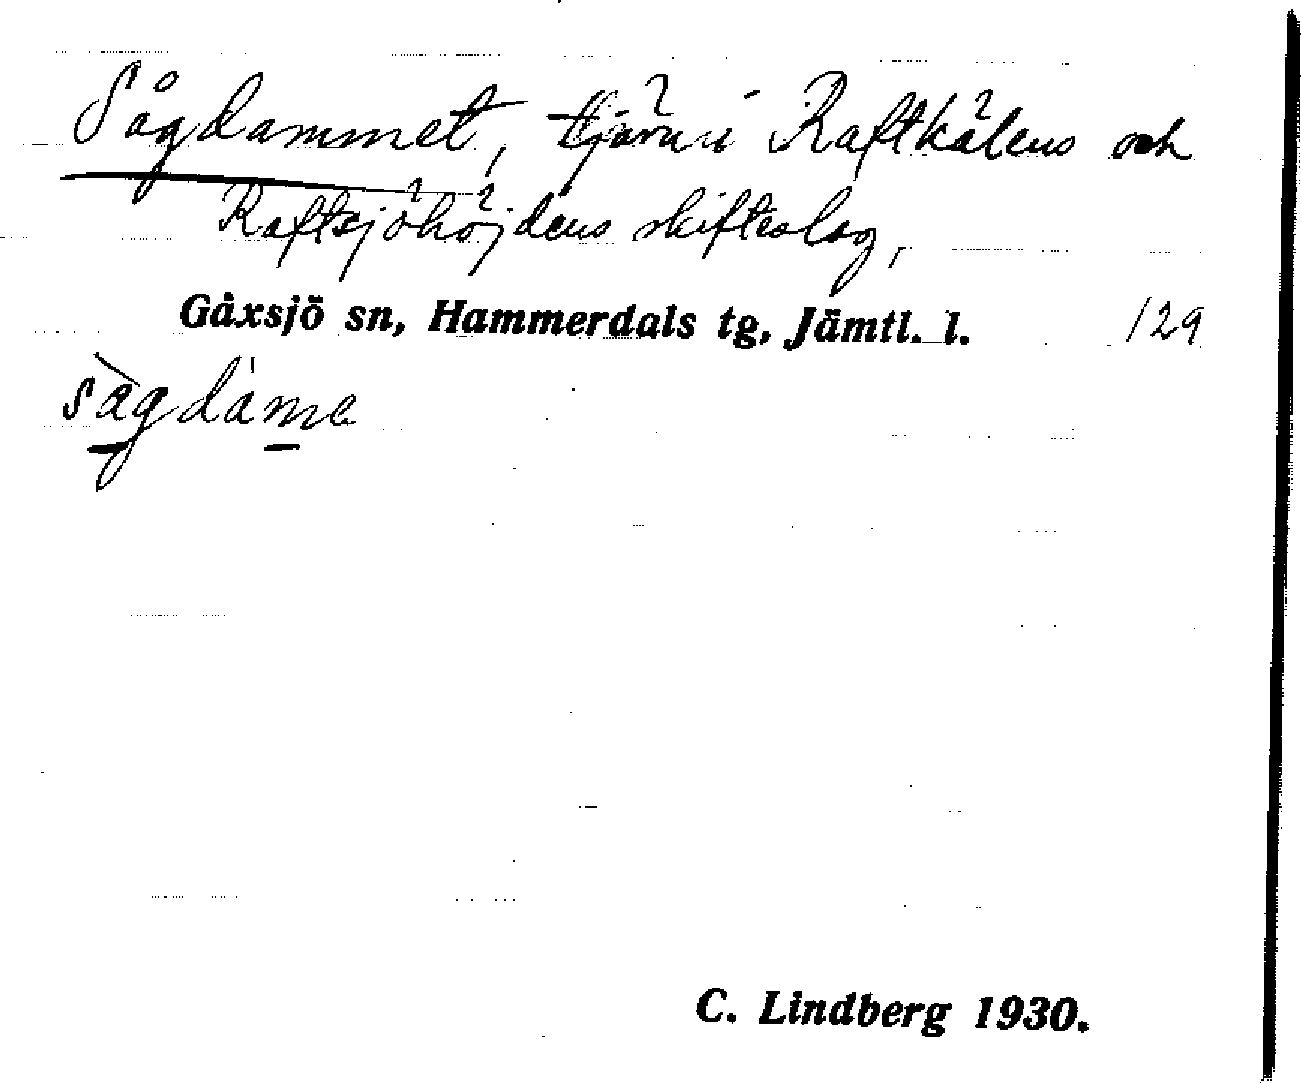 Sågdammet, tjärn i Raftkälens och
Raftsjöhöjdens skifteslag,
Gåxsjö sn, Hammerdals tg, Jämtl. l. 129
sàgdáme
C. Lindberg 1930.